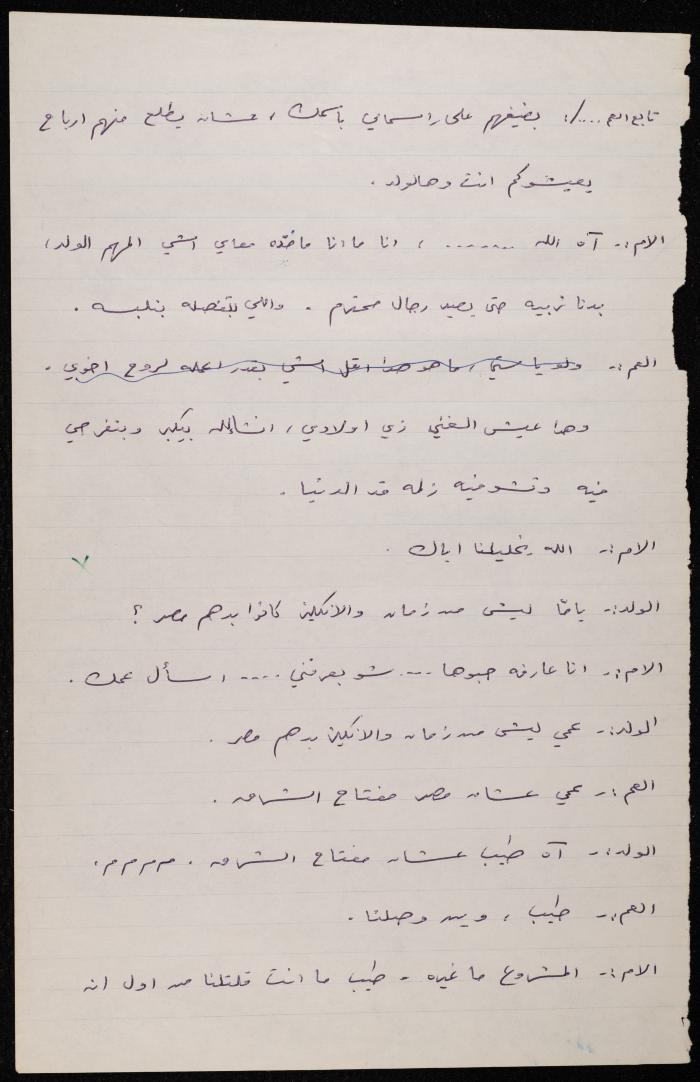 تابع العم..../: بضيفهم على راسمالي باسمك ، عشان يطلع منهم ارباح
يعيشوكم انت وهالولد .
الام :- آه الله ....... ، انا ما انا ماخذه معاي اشي المهم الولد ،
بدنا نربيه حتى يصير رجال محترم . واللي بتفصله بنلبسه .
العم :- ولو يا ستي ، ما هو هذا اقل اشي بقدر اعمله لروح اخوي .
وهذا عيش الغني زي اولادي ، انشالله بيكبر وبتفرحي
فيه وتشوفيه زلمه قد الدنيا .
الام :- الله يخليلنا اياك .
الولد :- يامّا ليش من زمان والانكليز كانوا بدهم مصر ؟
الام :- انا عارفه حبوها ... شو بعرفني .... اسأل عمك .
الولد :- عمي ليش من زمان والانكليز بدهم مصر .
العم :- عمي عشان مصر مفتاح الشرق .
الولد :- آه طيب عشان مفتاح الشرق . م م م م م .
العم :- طيب ، وين وصلنا .
الام :- المشروع ما غيره - طيب ما انت قلتلنا من اول انه